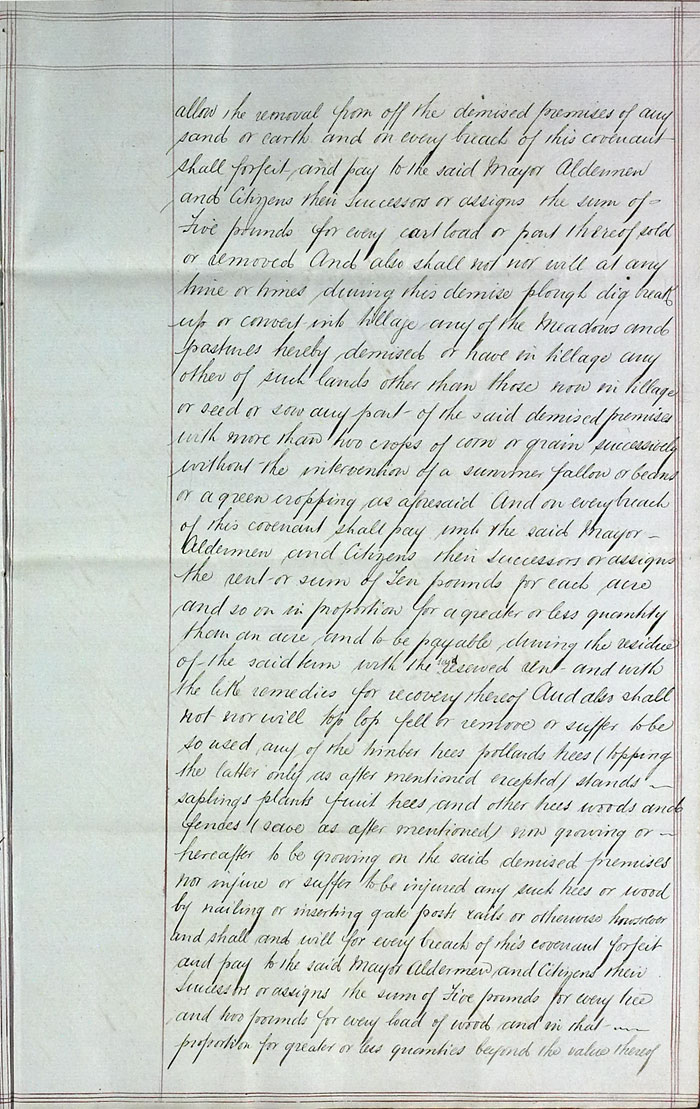 allow the removal from off the demised premises of any
sand or earth and on every breach of this covenant
shall forfeit and pay to the said Mayor Aldermen
and Citizens their Successors or assigns the sum of -
Five pounds for every cart load or part thereof sold
or removed And also shall not nor will at any
time or times during this demise plough dig break
up or convert into tillage any of the Meadows and
pastures hereby demised or have in tillage any
other of such lands other than those now in tillage
or seed or sow any part of the said demised premises
with more than two crops of corn or grain successively
without the intervention of a summer fallow or beans
or a green cropping as aforesaid And on every breach
of this covenant shall pay unto the said Mayor -
Aldermen and Citizens their Successors or assigns
the rent or sum of Ten pounds for each acre
and so on in proportion for a greater or less quantity
than an acre and to be payable during the residue
of the said term with the sd reserved rent and with
the like remedies for recovery thereof And also shall
not nor will top lop fell or remove or suffer to be
so used any of the timber trees pollards trees (topping
the latter only as after mentioned excepted) stands ~
saplings plants fruit trees and other trees woods and
fences (save as after mentioned) now growing or ~
hereafter to be growing on the said demised premises
nor injure or suffer to be injured any such trees or wood
by nailing or inserting gate posts rails or otherwise howsoever
and shall and will for every breach of this covenant forfeit
and pay to the said Mayor Aldermen and Citizens their
Successors or assigns the sum of Five pounds for every tree
and two pounds for every load of wood and in that ~
proportion for greater or less quanties beyond the value thereof